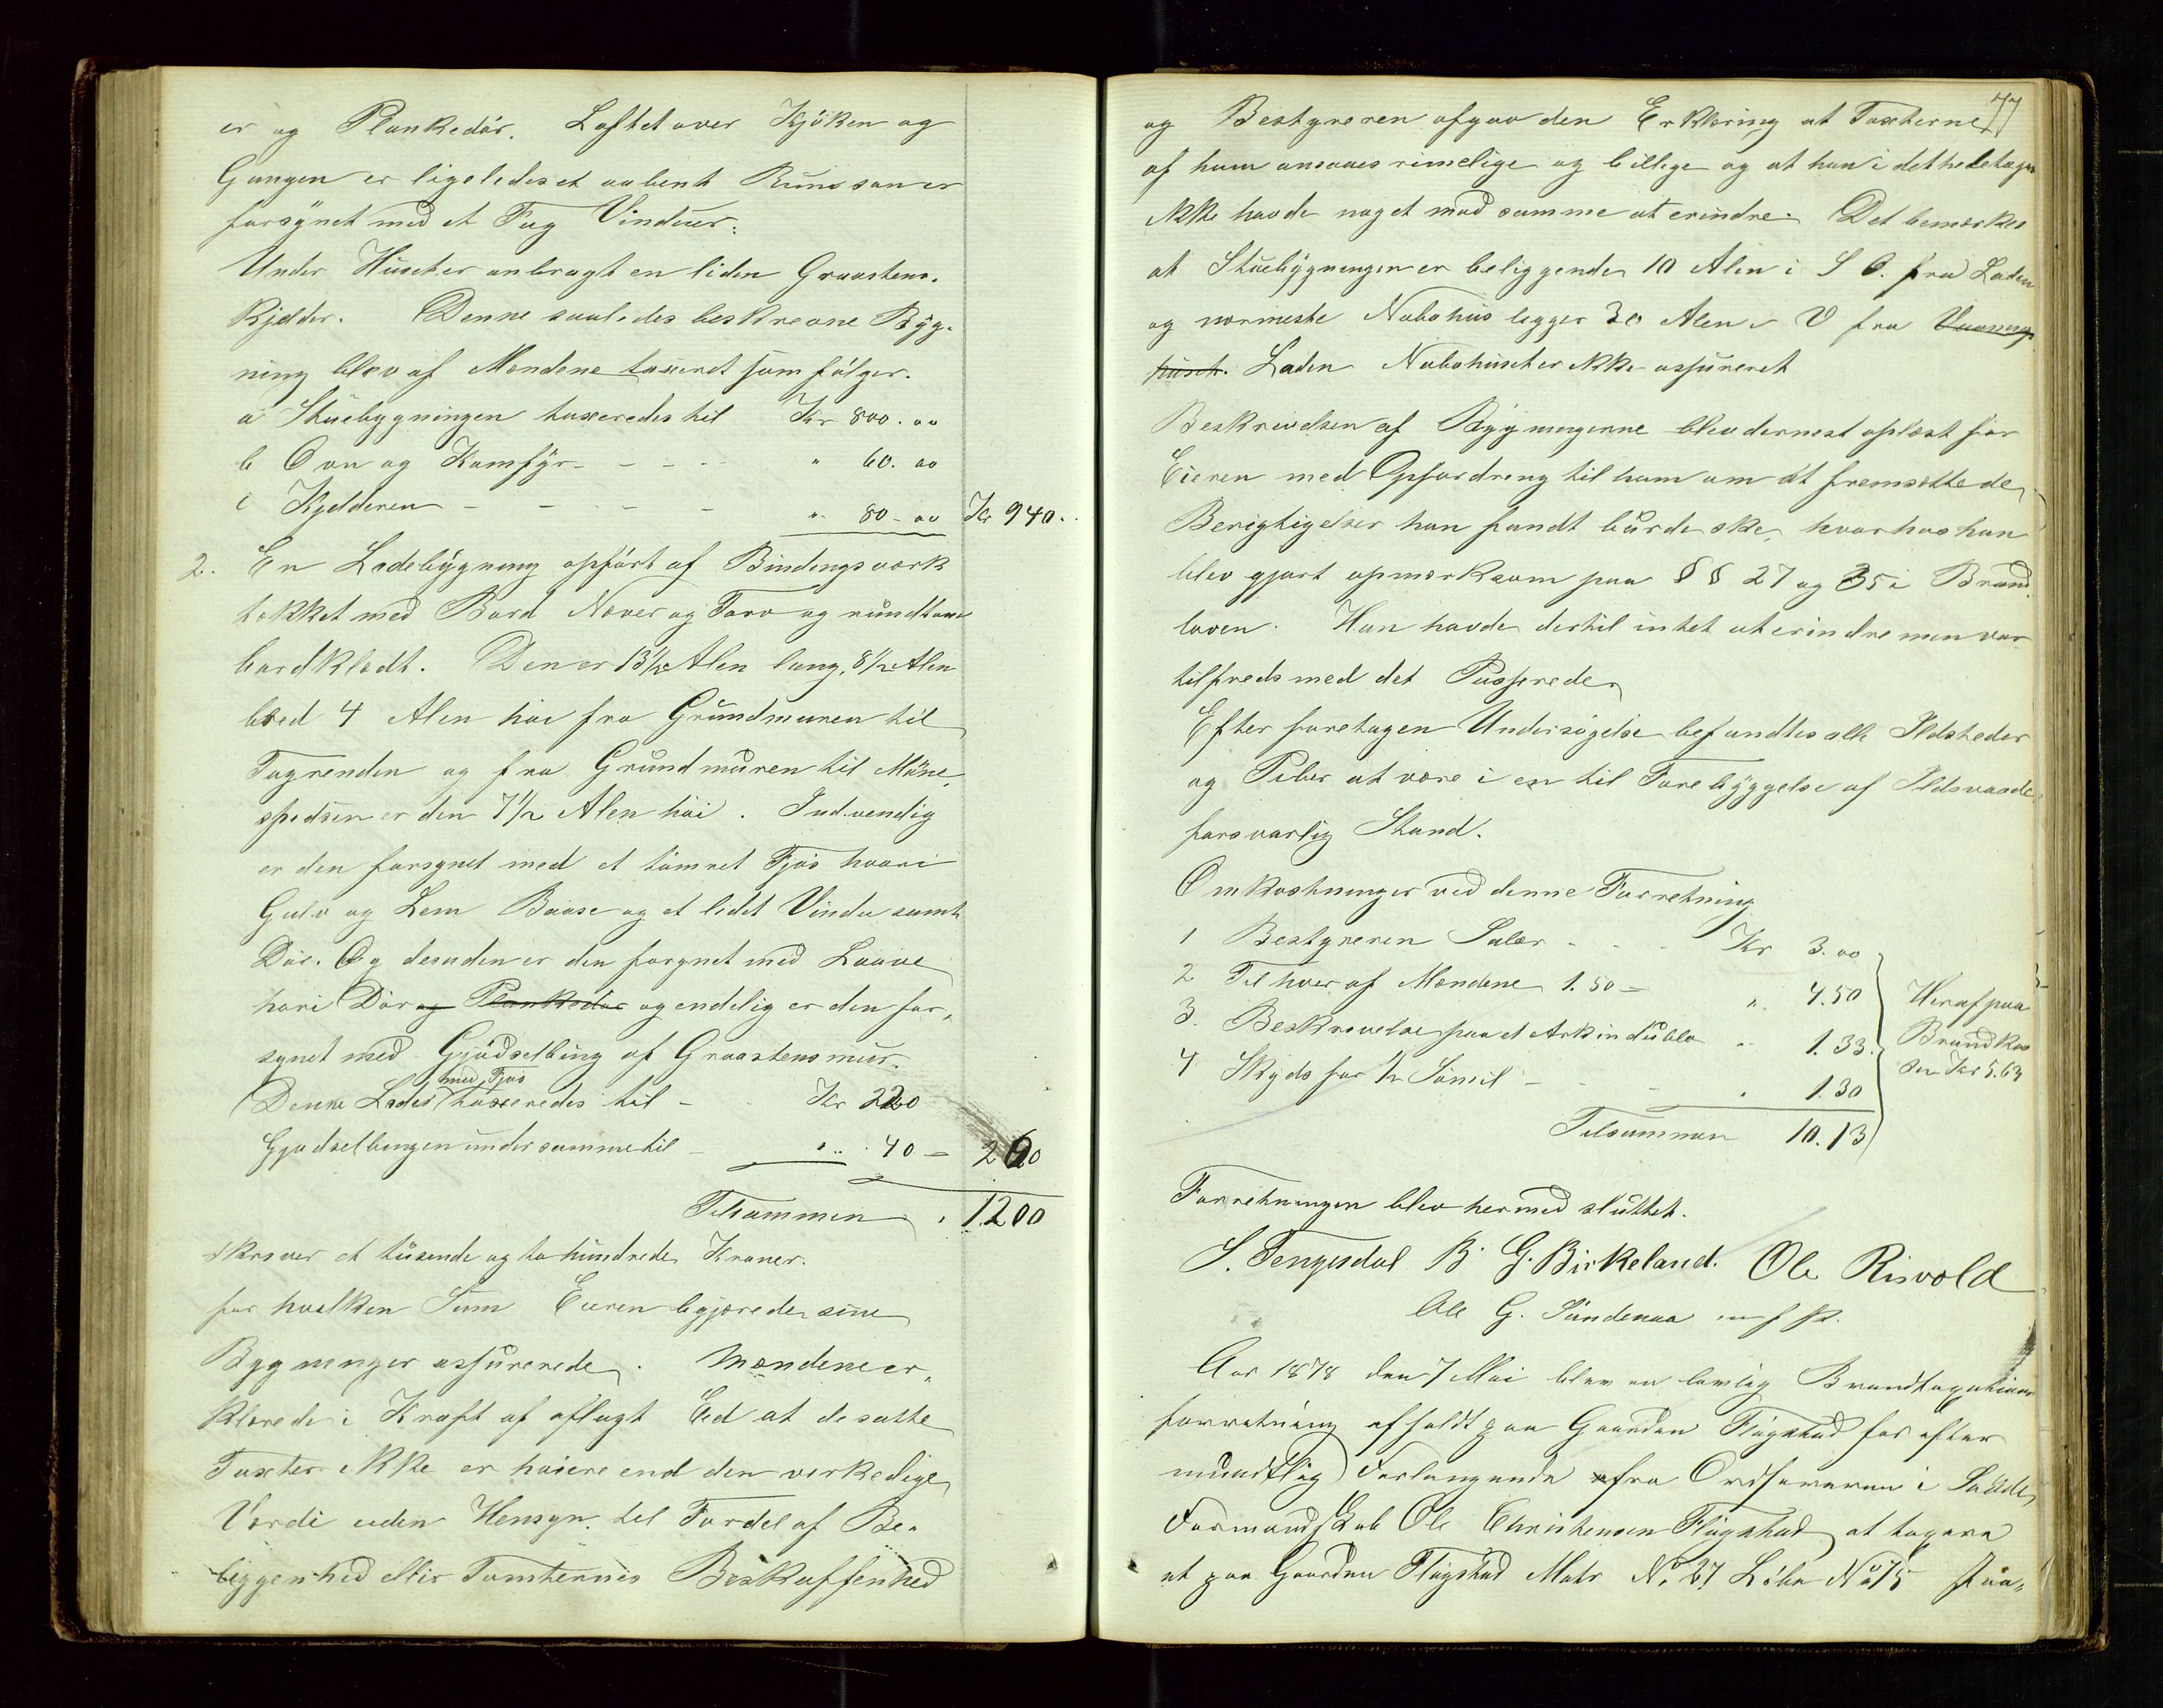 er og Plankedör. Loftet over Kjöken og
Gangen er ligeledes et aabent Rum som er
forsynet med et Fag Vinduer.
Under Huset er anbragt en liden Graastens-
kjelder. Denne saaledes beskrevne Byg-
ning blev af Mændene taxeret som fölger.
a Stuebygningen taxeredes til Kr 800.00
b Ovn og Komfyr - - - - " 60.00
c Kjelderen - - - - - " 80-00 Kr 940.
2. En Ladebygning opfört af Bindingsværk
tækket med Bord Næver og Torv og rundtom
bordklædt. Den er 13 1/2 Alen lang, 8 1/2 Alen
bred 4 Alen höi fra Grundmuren til
Tagrenden og fra Grundmuren til Möne-
spidsen er den 7 1/2 Alen höi. Indvendig
er den forsynet med et tömret Fjös hvori
Gulv og Lem Baase og et lidet Vindu samt
Dör. Og desuden er den forynet med Laave
hvori Dör og Plankedör og endelig er den for-
synet med Gjödselbing af Graastensmur.
med Fjös
Denne Lades taxeredes til - Kr 220
Gjödselbingen under samme til - " 40 - 260
Tilsammen " 1200
skriver et tusende og to hundrede Kroner.
for hvilken Sum Eieren begjærede sine
Bygninger assurerede. Mændene er-
klærede i Kraft af aflagt Eed at de satte
Taxter ikke er höiere end den virkelige
Værdi uden Hensyn til Fordel af Be-
liggenhed eller Tomternes Beskaffenhed
77
og Bestyreren afgav den Erklæring at Taxterne
af ham ansaaes rimelige og billige og at han i det heletagen
ikke havde noget mod samme at erindre. Det bemærkes
at Stuebygningen er beliggende 10 Alen i S O. fra Laden
og nærmeste Nabohus ligger 30 Alen i V fra Vaanings
huset. Laden Nabohuset er ikke assureret
Beskrivelsen af Bygningerne blev dernæst oplæst for
Eieren med Opfordring til ham om at fremsætte de
Berigtigelser han fandt burde ske, hvorhos han
blev gjort opmærksom paa §§ 27 og 35 i Brand-
loven. Han havde dertil intet at erindre men var
tilfreds med det Passerede.
Efter foretagen Undersögelse befandtes alle Ildsteder
og Piber at være i en til Forebyggelse af Ildsvaade
forsvarlig Stand.
Omkostninger ved denne Forretning
1 Bestyreren Salær - - - Kr 3.00
2 Til hver af Mændene 1.50 - " 4.50
3. Beskrivelse paa et Ark in dublo " 1.33.
4 Skyds for 1/2 Sömil - - - " 1.30
Tilsammen 10.13
Heraf paa
Brandkas
sen Kr 5.63
Forretningen blev hermed sluttet.
S. Tengesdal B. G. Birkeland. Ole Risvold
Ole G. Sandenaa m f P.
Aar 1878 den 7 Mai blev en lovlig Brandtaxations
forretning afholdt paa Gaarden Flugstad for efter
mundtlig Forlangende fra Ordföreren i
Formandskab Ole Christensen Flugstad at taxere
et paa Gaarden Flugstad Matr No. 27 Löbe No 75 staa-